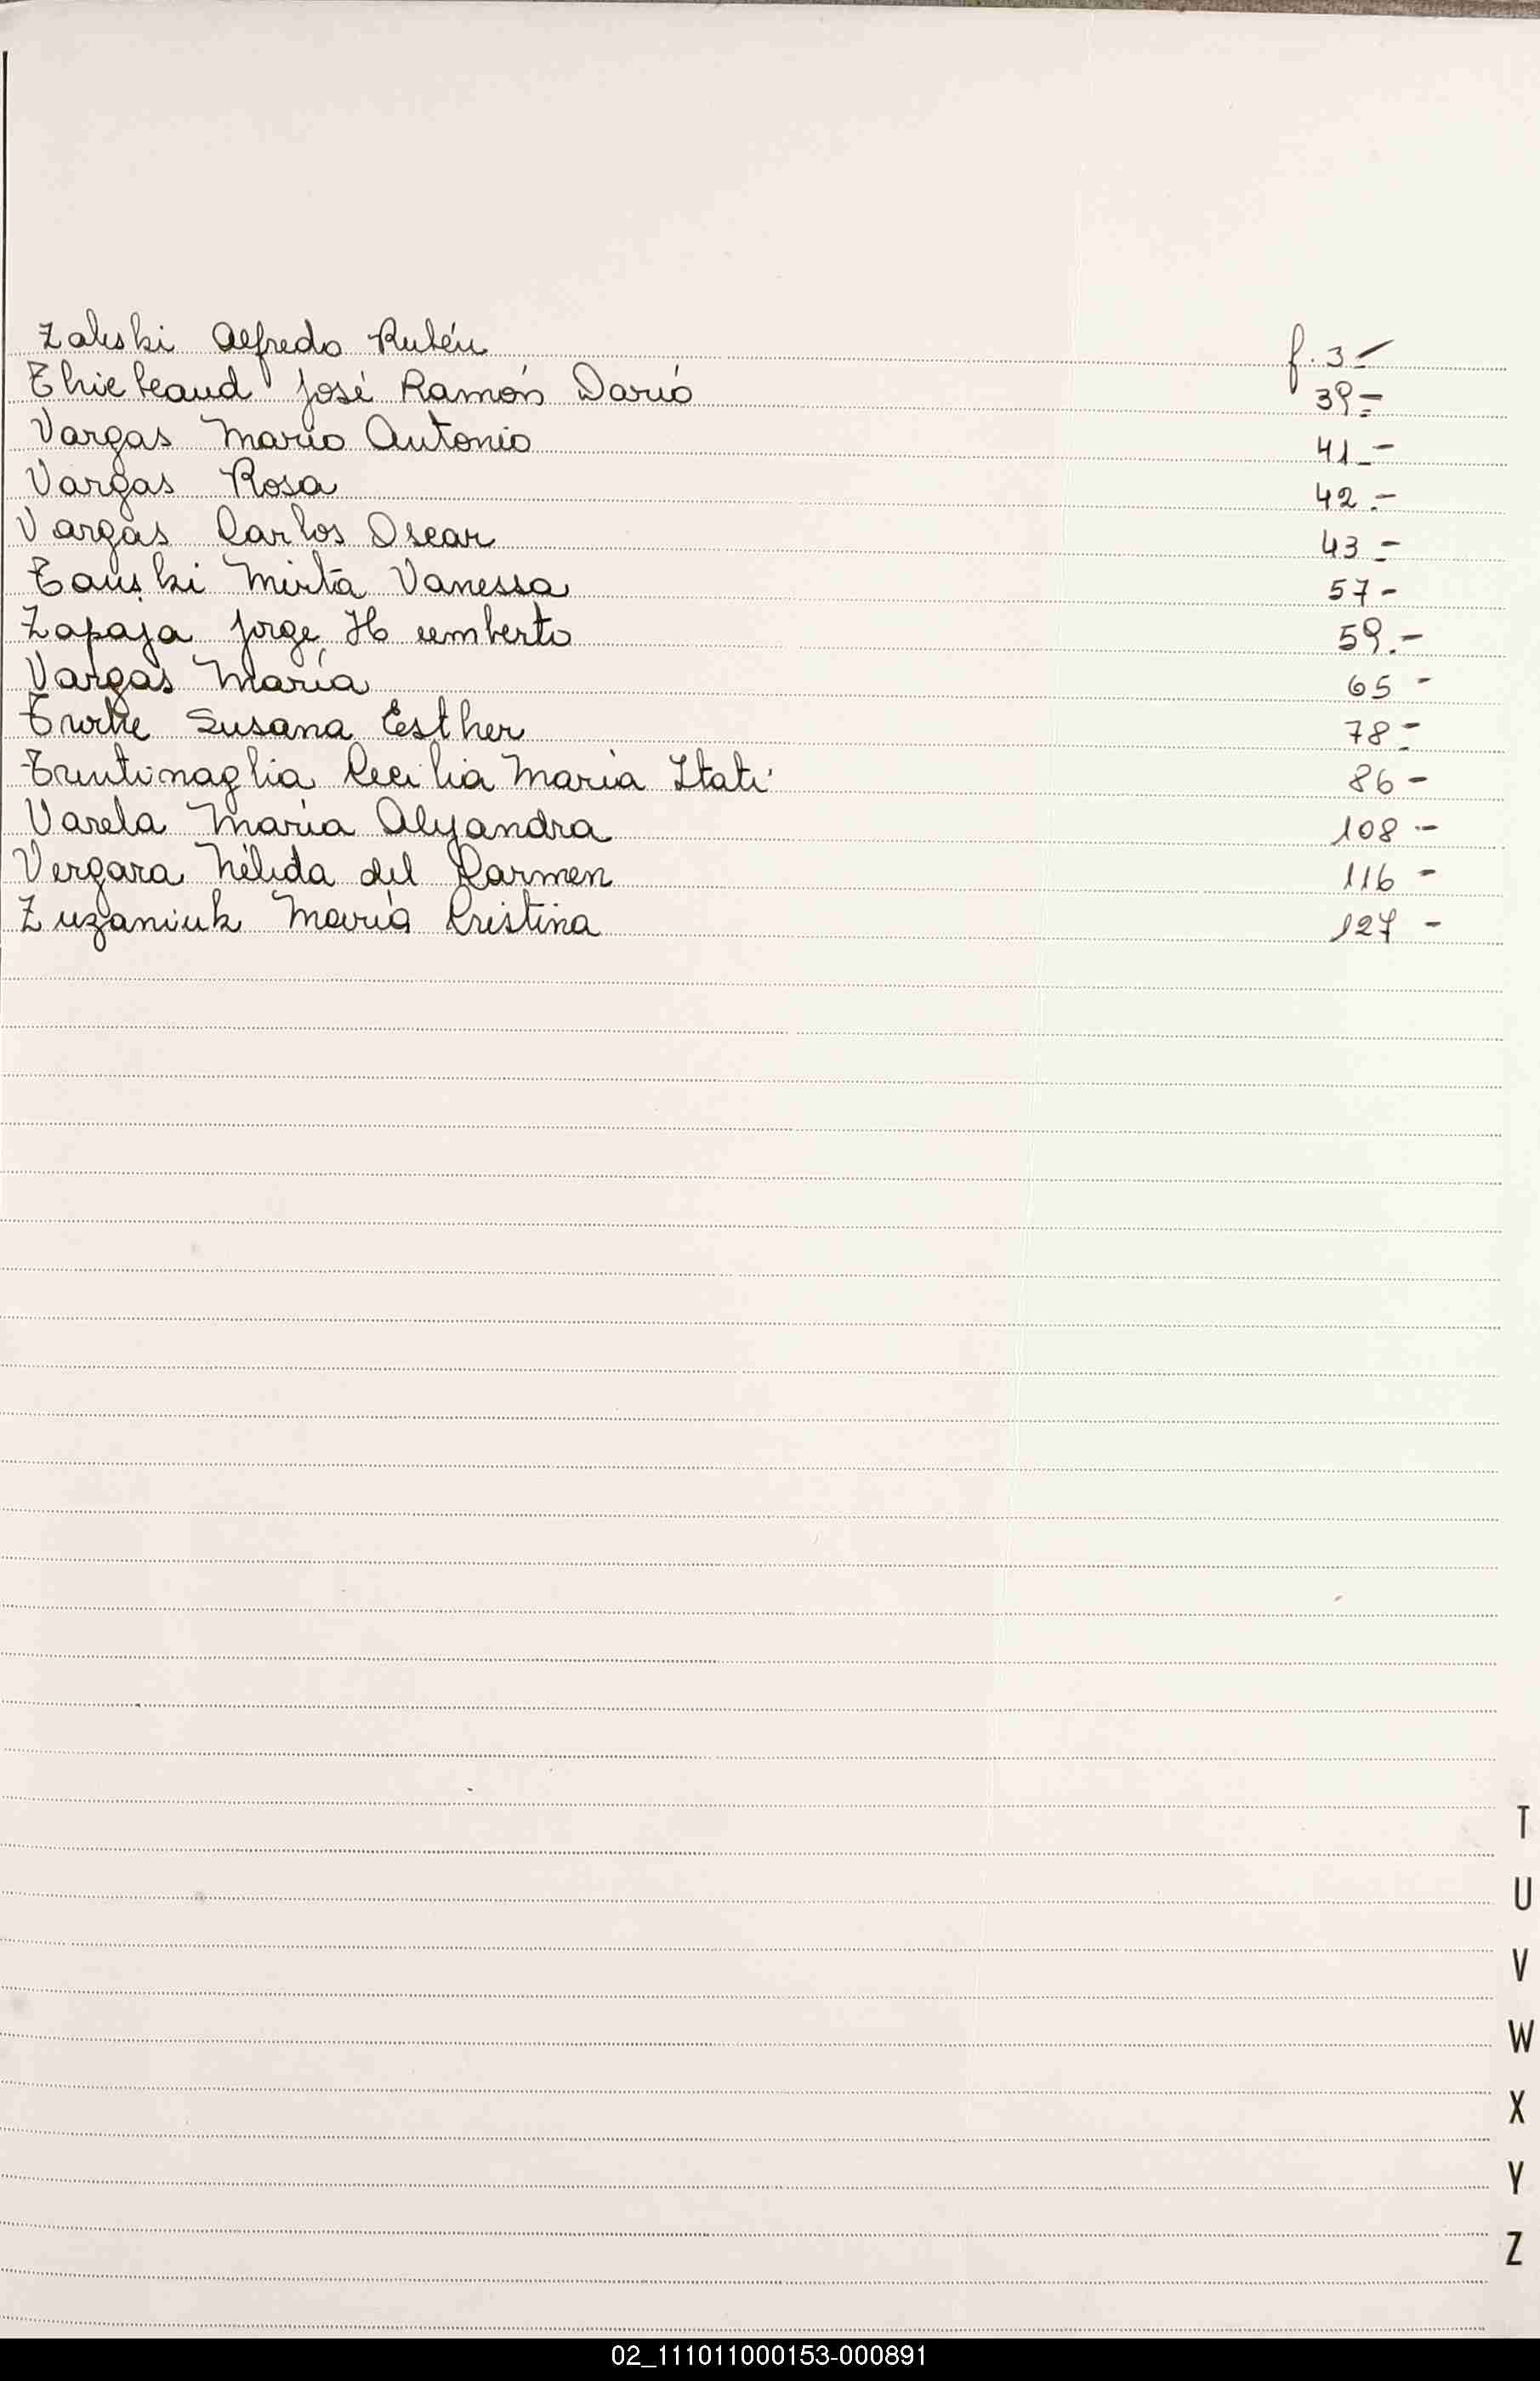 Zaleski Alfredo Rubén f. 3-
Thiebeaud José Ramón Darió 39=
Vargas Mario Antonio 41.-
Vargas Rosa 42.-
Vargas Carlos Oscar 43.-
Mirta Vanessa 57-
Zapaja Jorge Humberto 59.-
Vargas María 65-
Susana Esther 78.-
Trintinaglia Cecilia María Itatí 86-
Varela María Alejandra 108.-
Vergara Nélida del Carmen 116-
Zuzaniuk María Cristina 127-
T
U
V
W
X
Y
Z
02_111011000153-000891